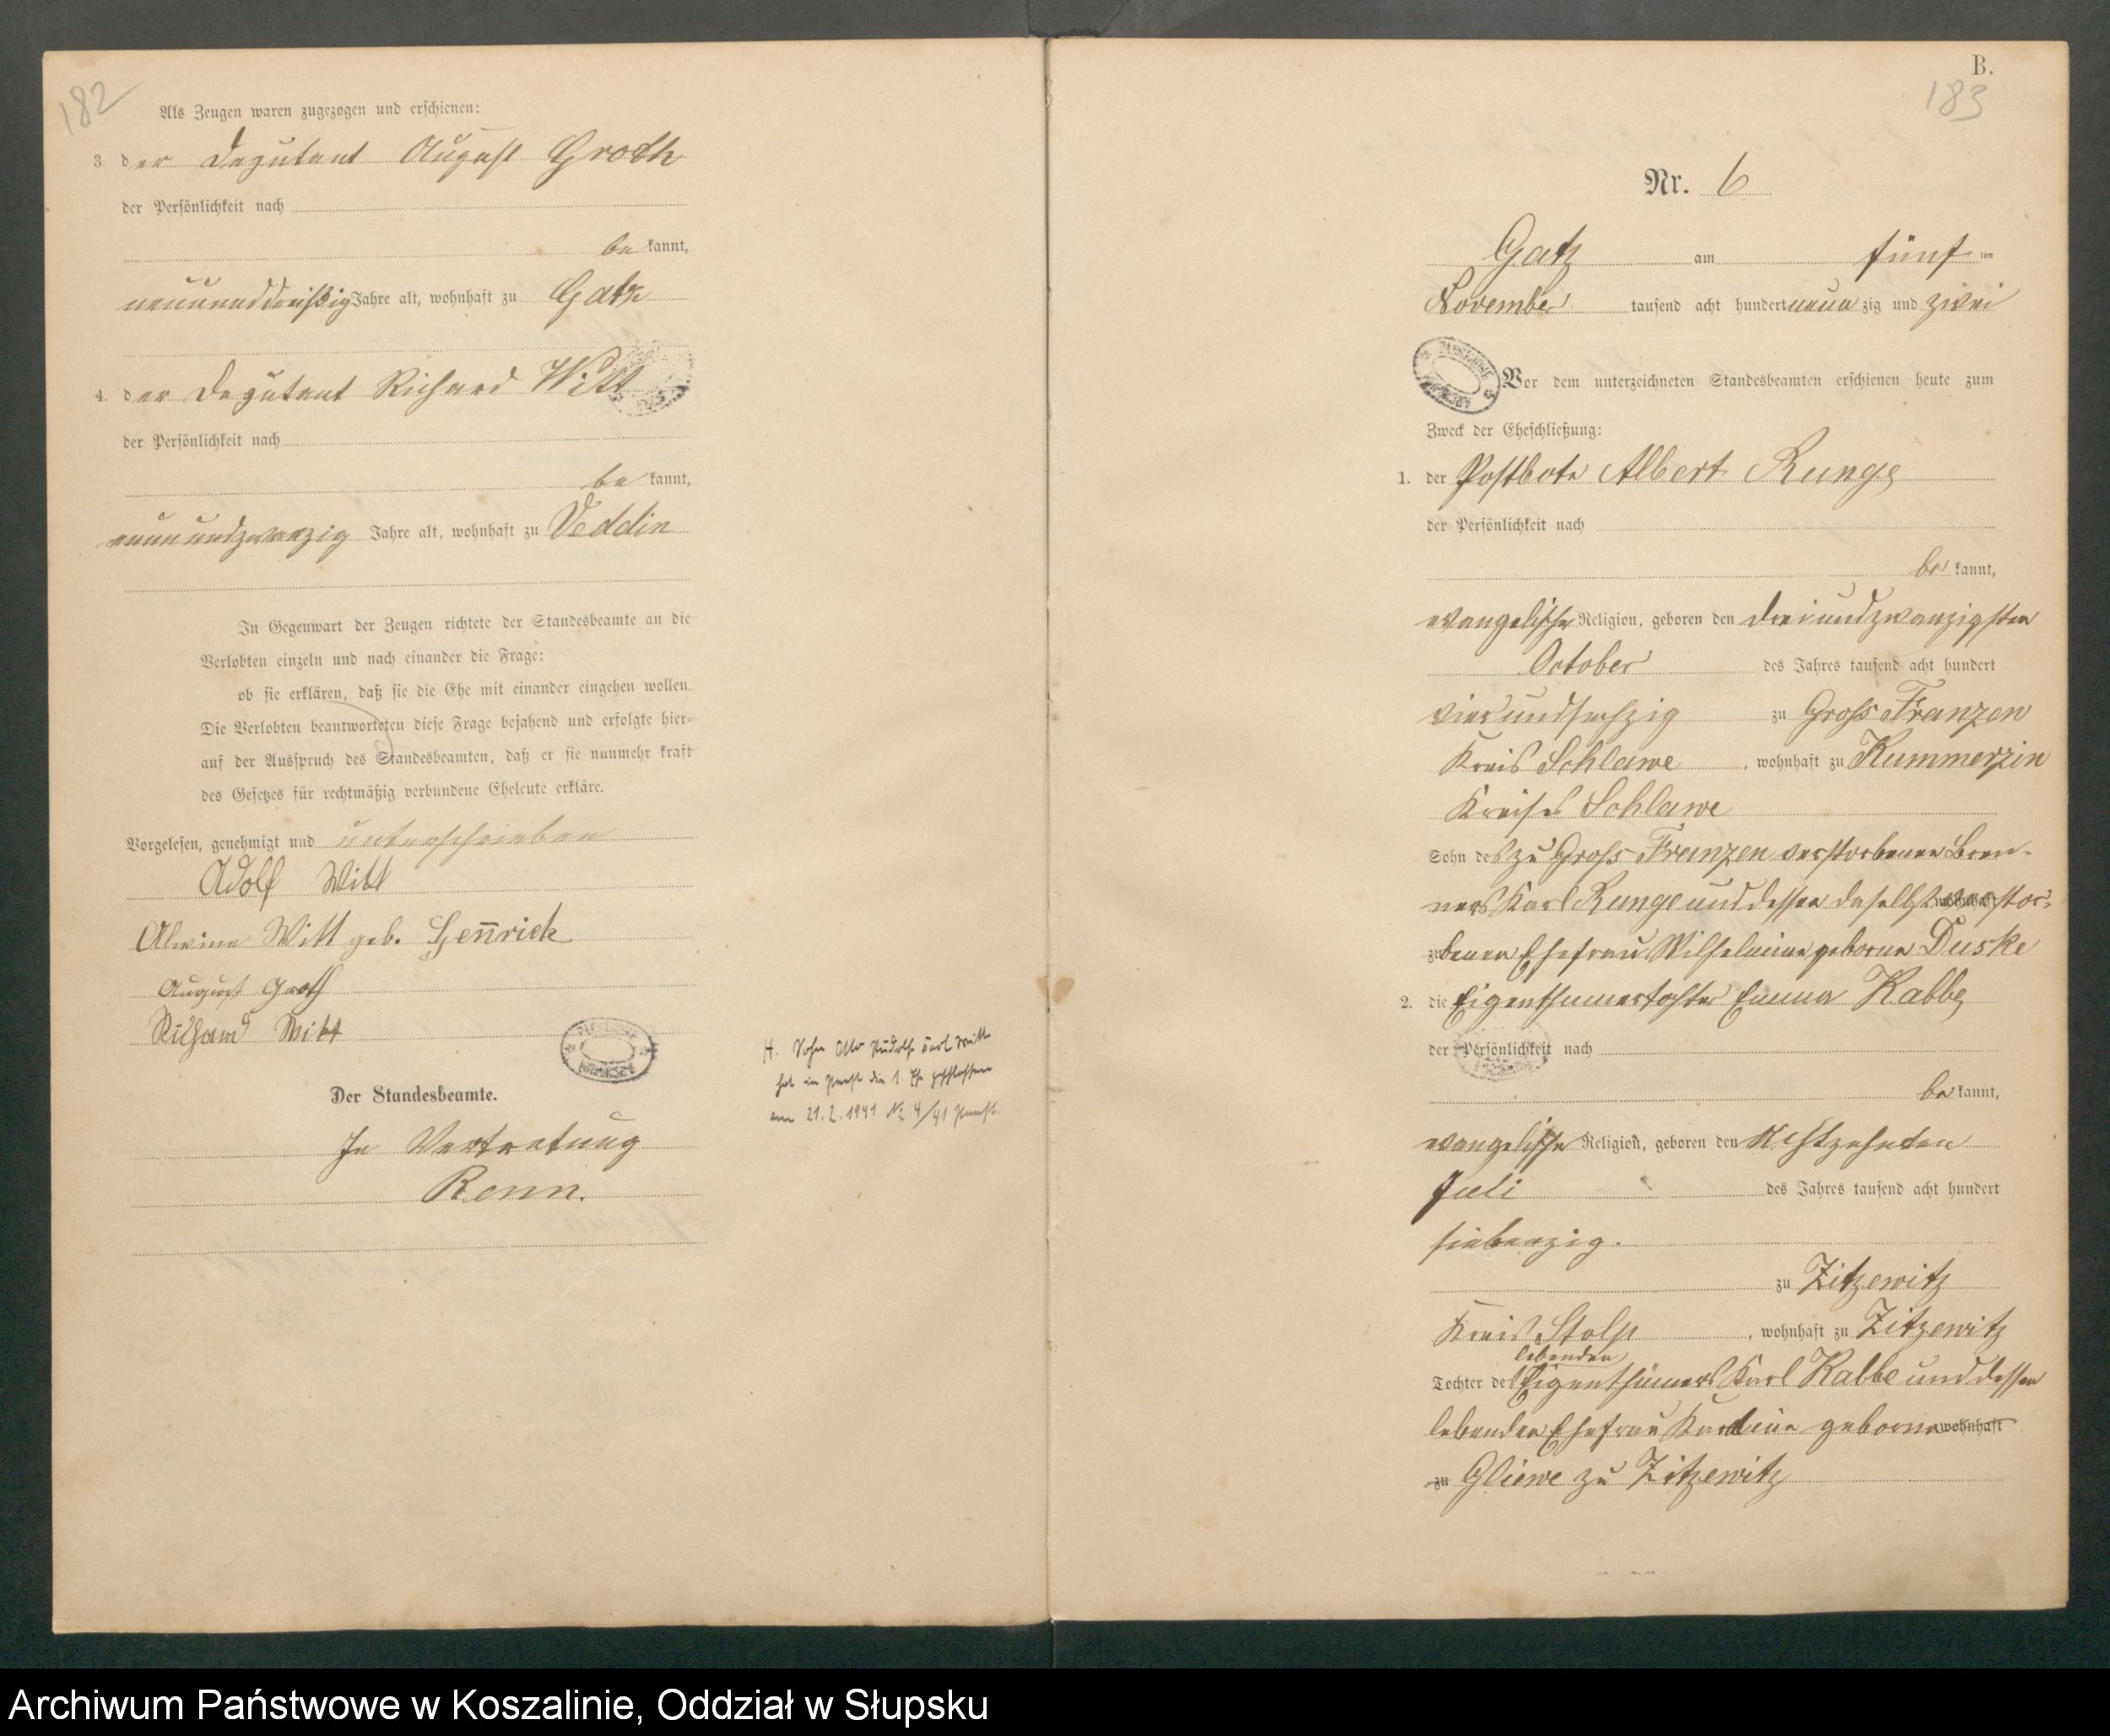 182
Als Zeugen waren zugezogen und erschienen:
3. der Deputant August Groth
der Persönlichkeit nach
be kannt,
neununddreißig Jahre alt, wohnhaft zu Gatz
4. der Deputant Richard Witt
der Persönlichkeit nach
be kannt,
neunundzwanzig Jahre alt, wohnhaft zu Veddin
In Gegenwart der Zeugen richtete der Standesbeamte an die
Verlobten einzeln und nach einander die Frage:
ob sie erklären, daß sie die Ehe mit einander eingehen wollen.
Die Verlobten beantworteten diese Frage bejahend und erfolgte hier-
auf der Ausspruch des Standesbeamten, daß er sie nunmehr kraft
des Gesetzes für rechtmäßig verbundene Eheleute erkläre.
Vorgelesen, genehmigt und unterschrieben
Adolf Witt
Alwine Witt geb. Henrick
August Groth
Richard Witt
Der Standesbeamte.
In Vertretung
Renn.
Sohn Otto Rudolf Karl Witt
hat in die 1. Ehe geschlossen
am 21.2.1941 No 4/41
B.
183
Nr. 6
Gatz am fünf ten
November tausend acht hundert neun zig und zwei
Vor dem unterzeichneten Standesbeamten erschienen heute zum
Zweck der Eheschließung:
1. der Postbote Albert Runge
der Persönlichkeit nach
be kannt,
evangelischer Religion, geboren den dreiundzwanzigsten
October des Jahres tausend acht hundert
vierundsechzig zu Gross Franzen
Kreis Schlawe, wohnhaft zu Kummerzin
Kreises Schlawe
Sohn des zu Gross Franzen verstorbenen Bren-
ners Karl Runge und dessen daselbst wohnhaft verstor-
zu benen Ehefrau Wilhelmine geborne Duske
2. die Eigenthümertochter Emma Kabbe
der Persönlichkeit nach
be kannt,
evangelischer Religion, geboren den achtzehnten
Juli des Jahres tausend acht hundert
siebenzig.
zu Zitzewitz
Kreis Stolp, wohnhaft zu Zitzewitz
lebenden
Tochter des Eigenthümers Karl Kabbe und dessen
lebenden Ehefrau Karoline geborne wohnhaft
zu Gliewe zu Zitzewitz
Archiwum Państwowe w Koszalinie, Oddział w Słupsku